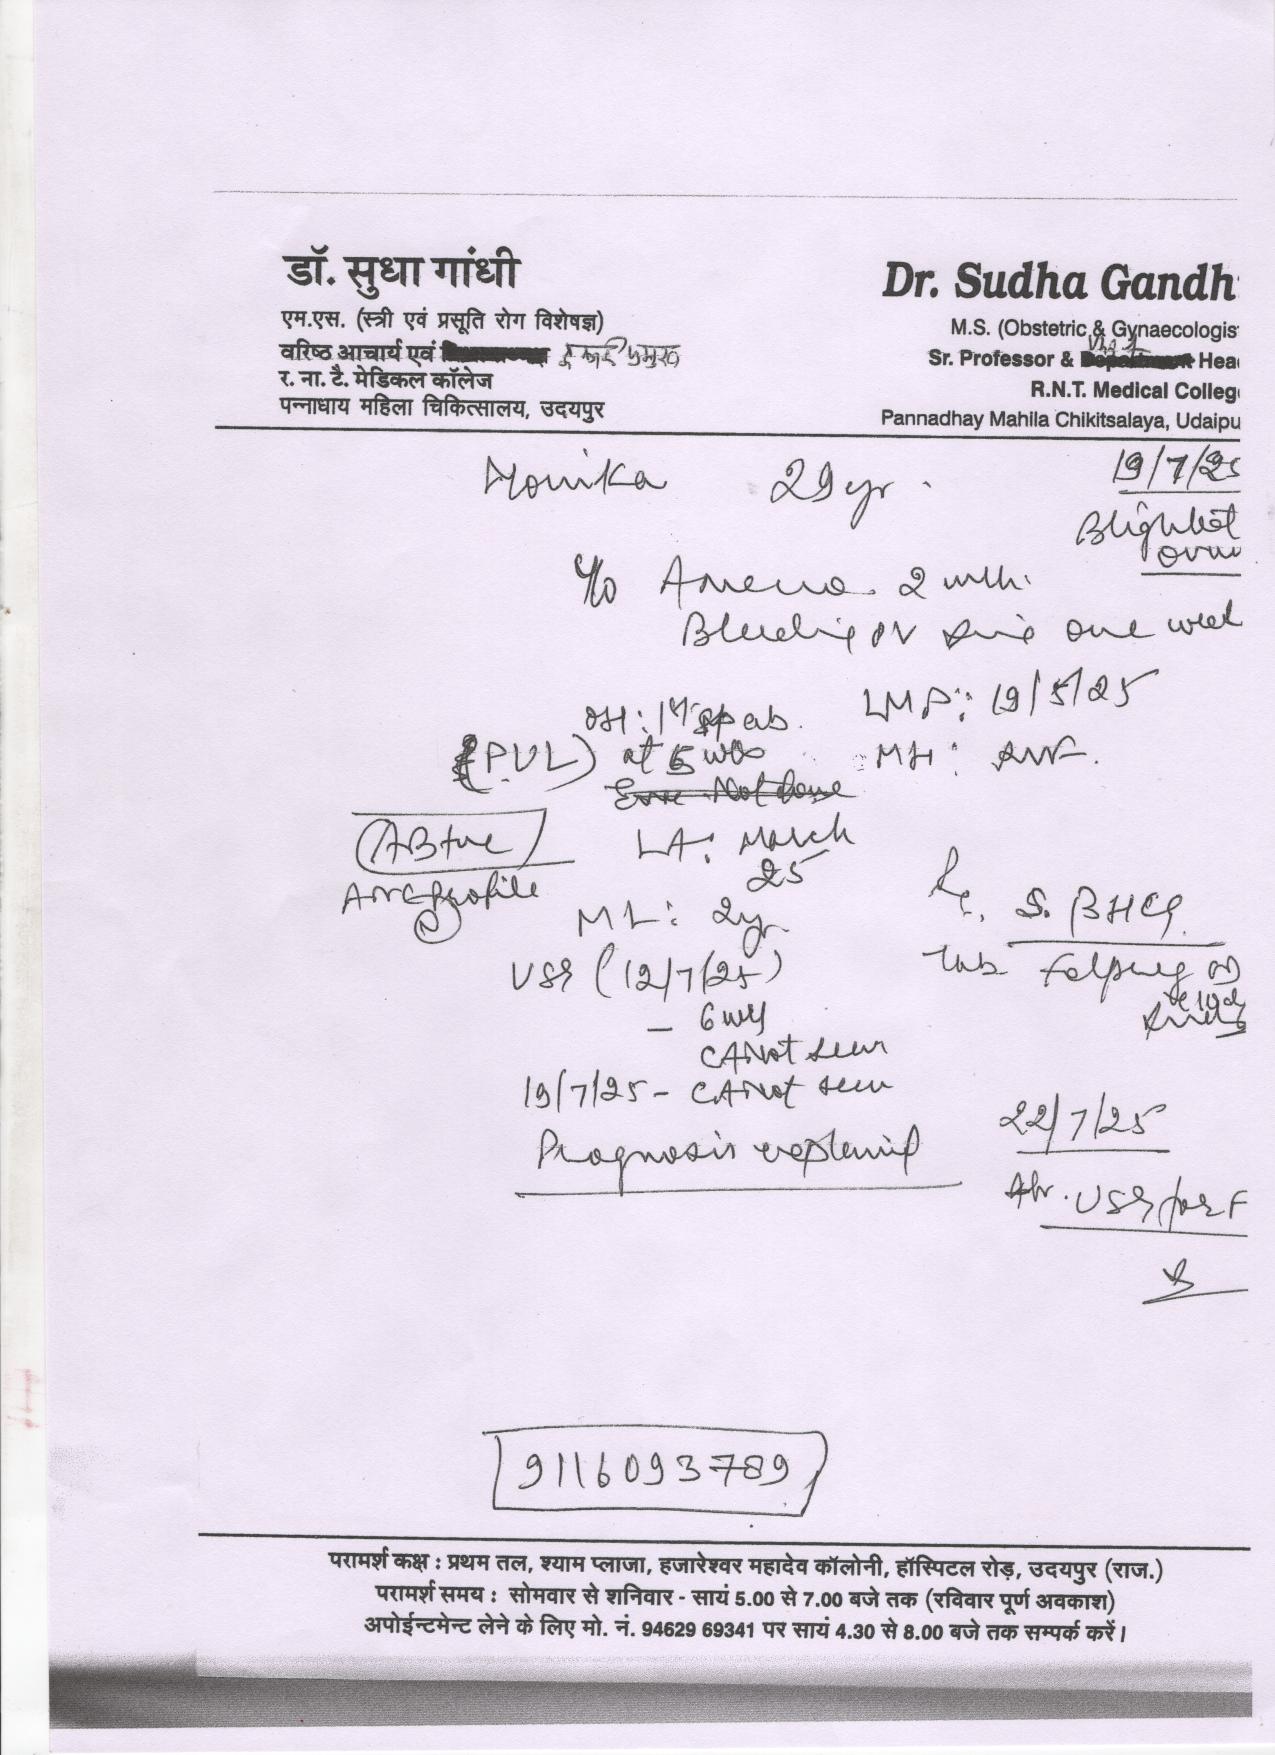 डॉ. सुधा गांधी
एम.एस. (स्त्री एवं प्रसूति रोग विशेषज्ञ)
वरिष्ठ आचार्य एवं इकाई प्रमुख
र. ना. टै. मेडिकल कॉलेज
पन्नाधाय महिला चिकित्सालय, उदयपुर
Dr. Sudha Gandh
M.S. (Obstetric & Gynaecologis
Sr. Professor & Unit Hea
R.N.T. Medical Colleg
Pannadhay Mahila Chikitsalaya, Udaipu
Monika 29 yr.
19/7/25
Blighted
ovum
Bleeding PV since one week
LMP: 19/5/25
OH: 1st sp ab.
(PUL) at 5 wks
MH:
AB+ve
ANC profile
N
LA: March
25
ML: 2yr
USG (12/7/25)
- 6 wk
CA Not seen
19/7/25 - CA Not seen
Prognosis explained
S. BHCG
Tab
22/7/25
USG for F
9116093789
परामर्श कक्ष : प्रथम तल, श्याम प्लाजा, हजारेश्वर महादेव कॉलोनी, हॉस्पिटल रोड़, उदयपुर (राज.)
परामर्श समय : सोमवार से शनिवार - सायं 5.00 से 7.00 बजे तक (रविवार पूर्ण अवकाश)
अपोईन्टमेन्ट लेने के लिए मो. नं. 94629 69341 पर सायं 4.30 से 8.00 बजे तक सम्पर्क करें।